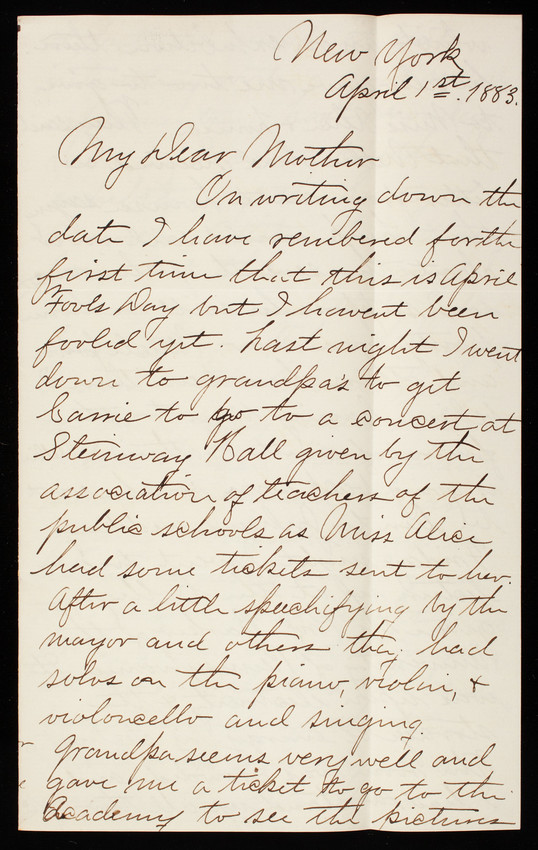 New York
April 1st. 1883.
My Dear Mother
On writing down the
date I have rembered for the
first time that this is April
Fools Day but I havent been
fooled yet. Last night I went
down to grandpa's to get
Carrie to go to a concert at
Steinway Hall given by the
association of teachers of the
public schools as Miss Alice
had some tickets sent to her.
After a little speechifying by the
mayor and others they had
solos on the piano, violin, &
violoncello and singing.
Grandpa seems very well and
gave me a ticket to go to the
Academy to see the pictures